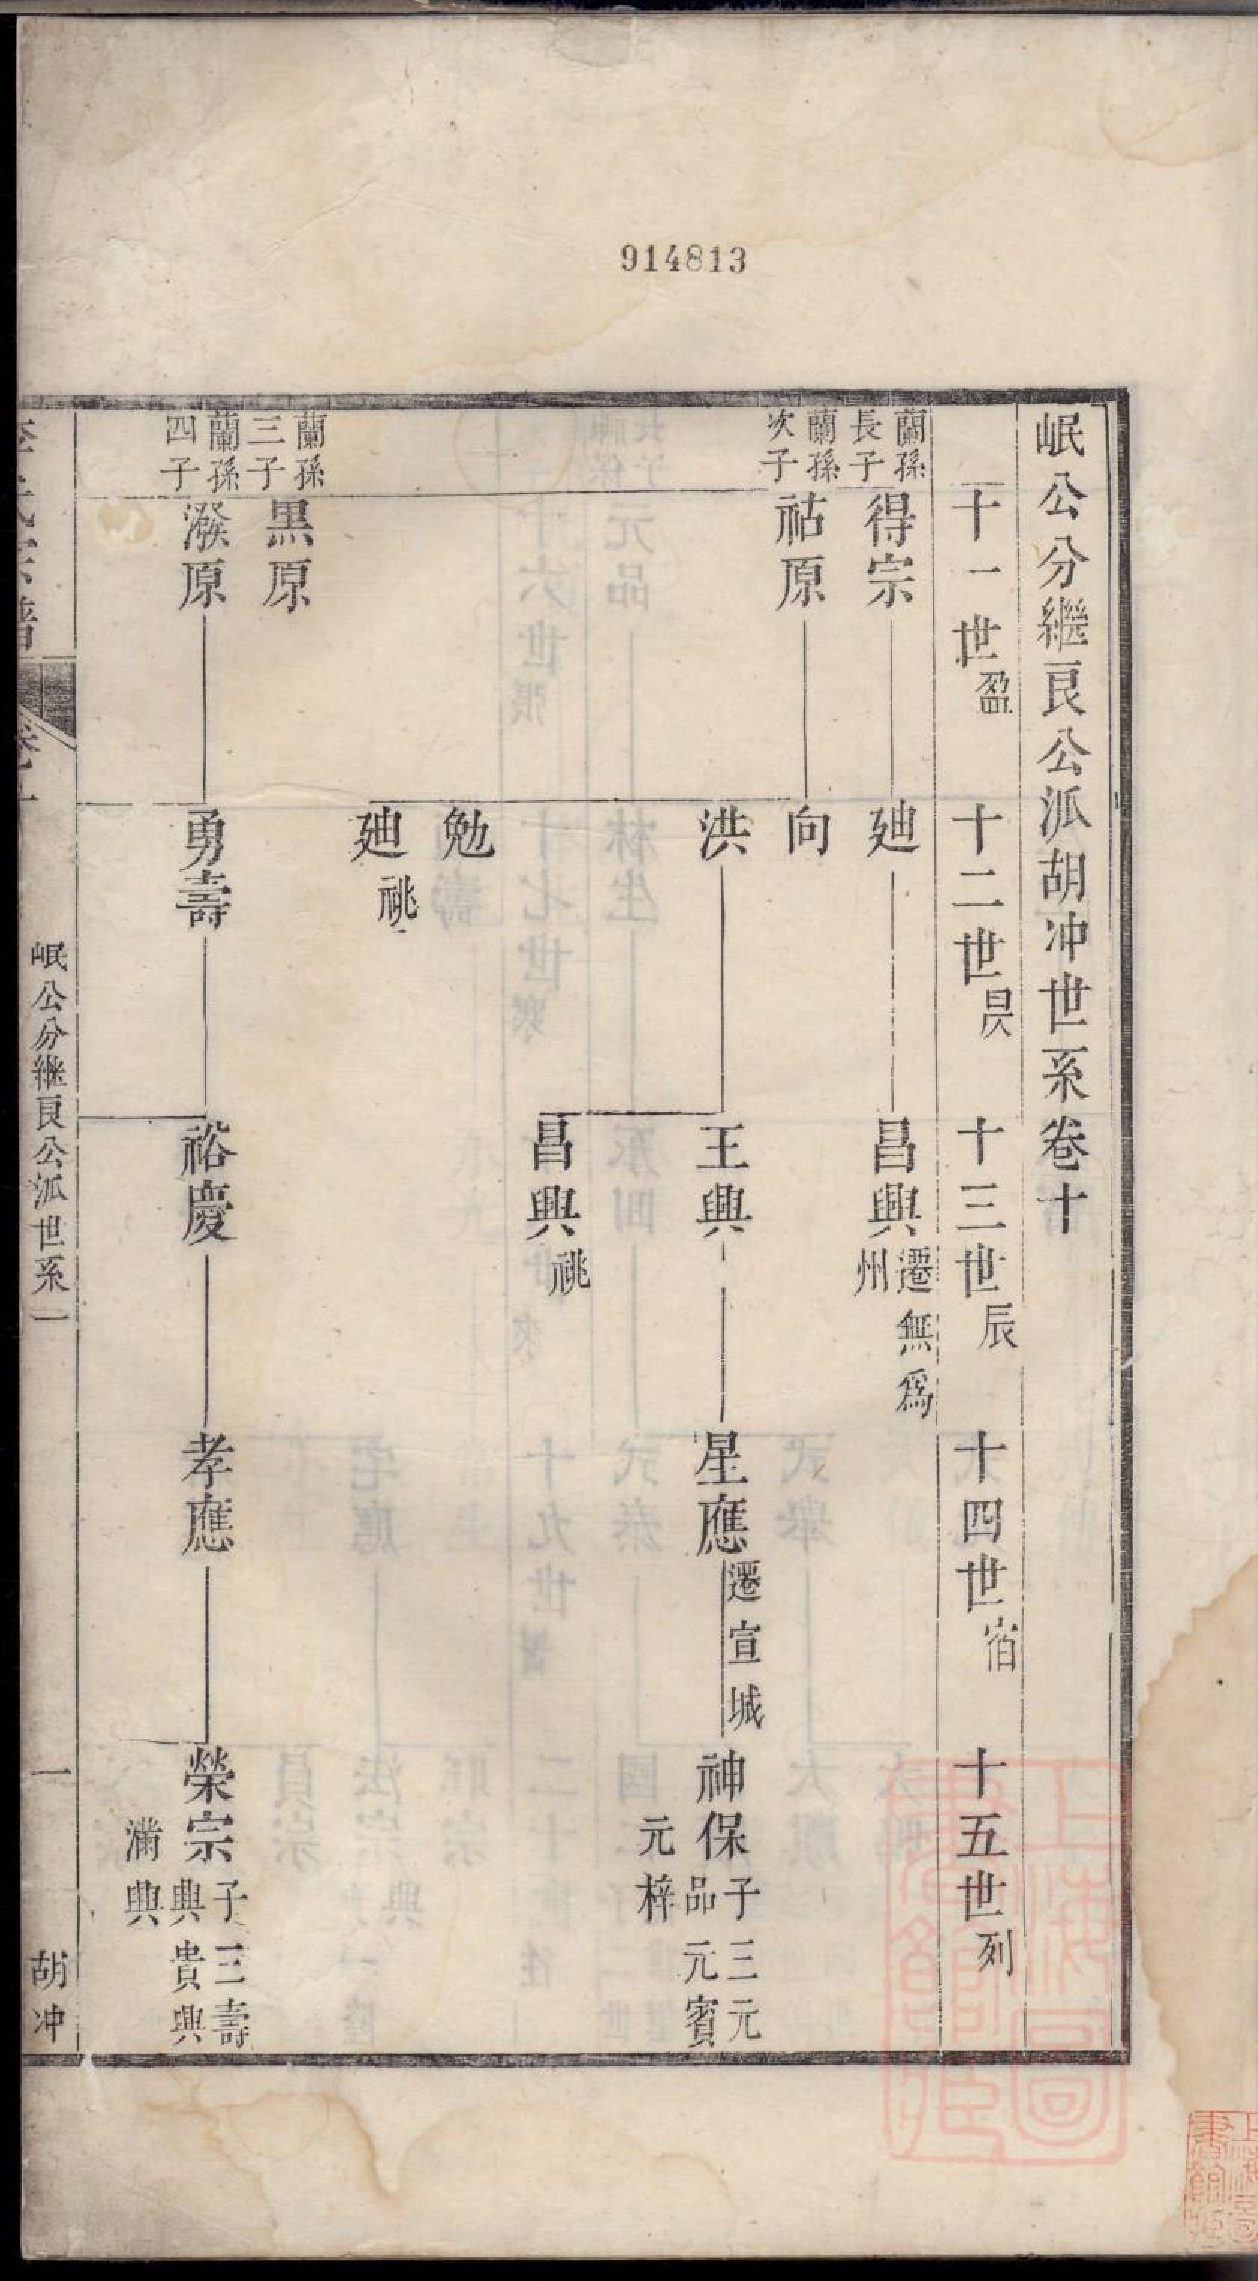 914813
岷公分繼良公派胡冲世系卷十
十一世盈 十二世昃 十三世辰 十四世宿 十五世列
蘭孫長子 得宗 廸 昌興 遷無爲州
蘭孫次子 祜原 向
洪 王興 星應 遷宣城 神保 子三元品元賓元梓
昌興 祧
勉
廸 祧
蘭孫三子 黒原
蘭孫四子 潑原 勇壽 裕慶 孝應 榮宗 子三壽興貴興滿興
岷公分繼良公派世系一 一 胡冲